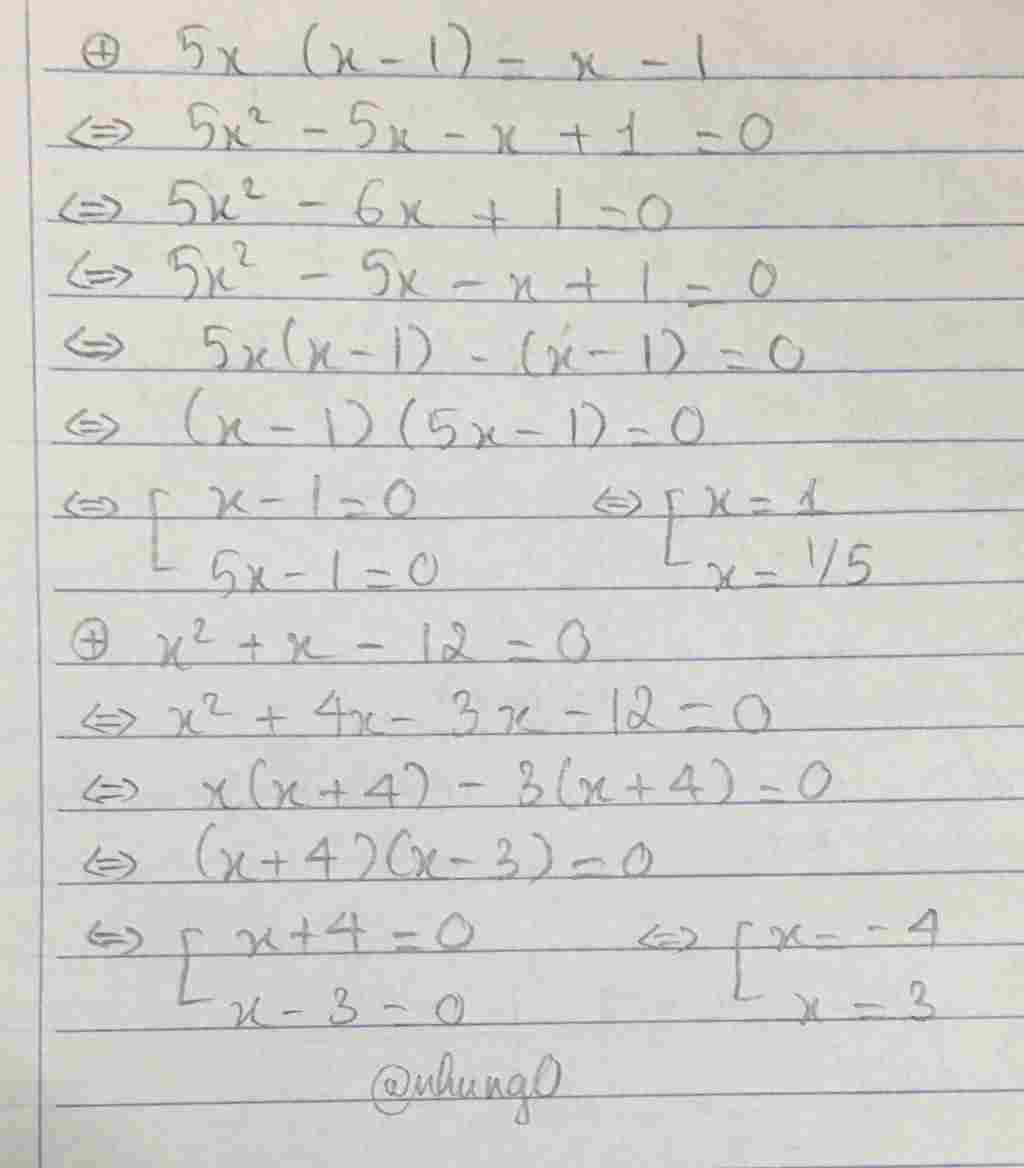 ⊕ 5x (x - 1) = x - 1
⇔ 5x² - 5x - x + 1 = 0
⇔ 5x² - 6x + 1 = 0
⇔ 5x² - 5x - x + 1 = 0
⇔ 5x(x - 1) - (x - 1) = 0
⇔ (x - 1)(5x - 1) = 0
⇔ [ x - 1 = 0 ⇔ [ x = 1
5x - 1 = 0 x = 1/5
⊕ x² + x - 12 = 0
⇔ x² + 4x - 3x - 12 = 0
⇔ x(x + 4) - 3(x + 4) = 0
⇔ (x + 4)(x - 3) = 0
⇔ [ x + 4 = 0 ⇔ [ x = -4
x - 3 = 0 x = 3
@nhung0